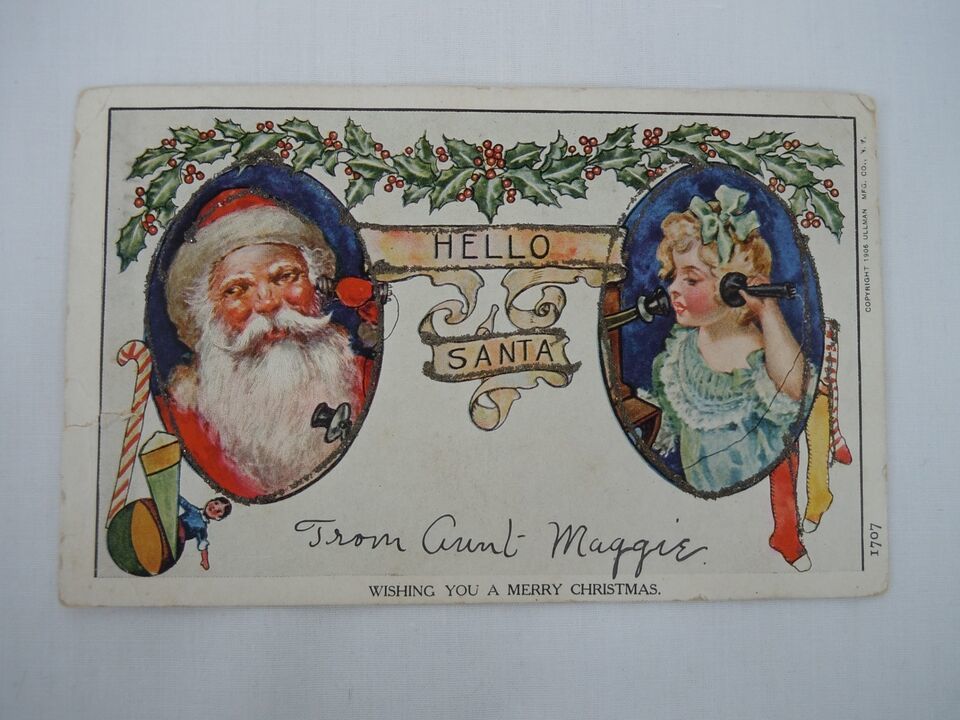 HELLO
SANTA
From Aunt Maggie.
WISHING YOU A MERRY CHRISTMAS.
COPYRIGHT 1906 ULLMAN MFG. CO., N.Y.
1707